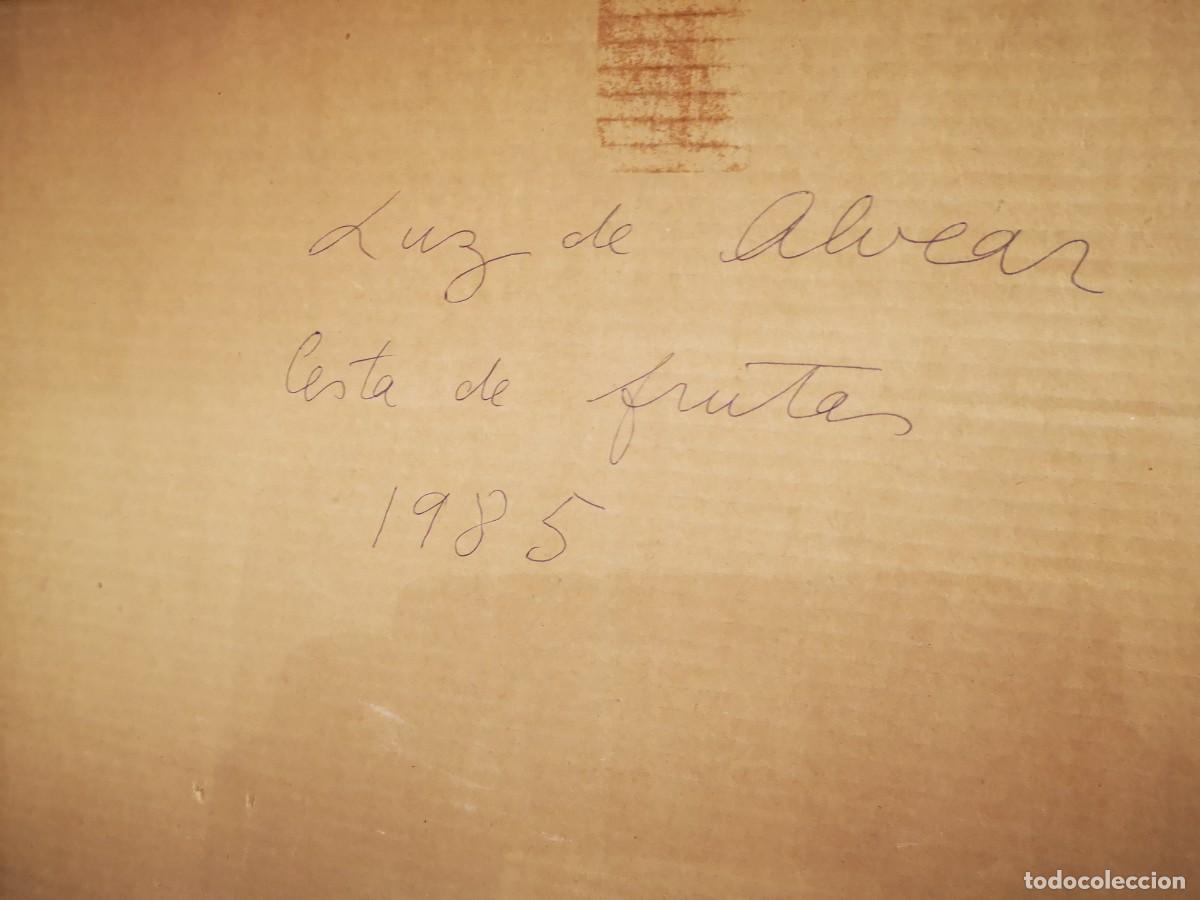 Luz de Alvear
Cesta de frutas
1985
todocoleccion